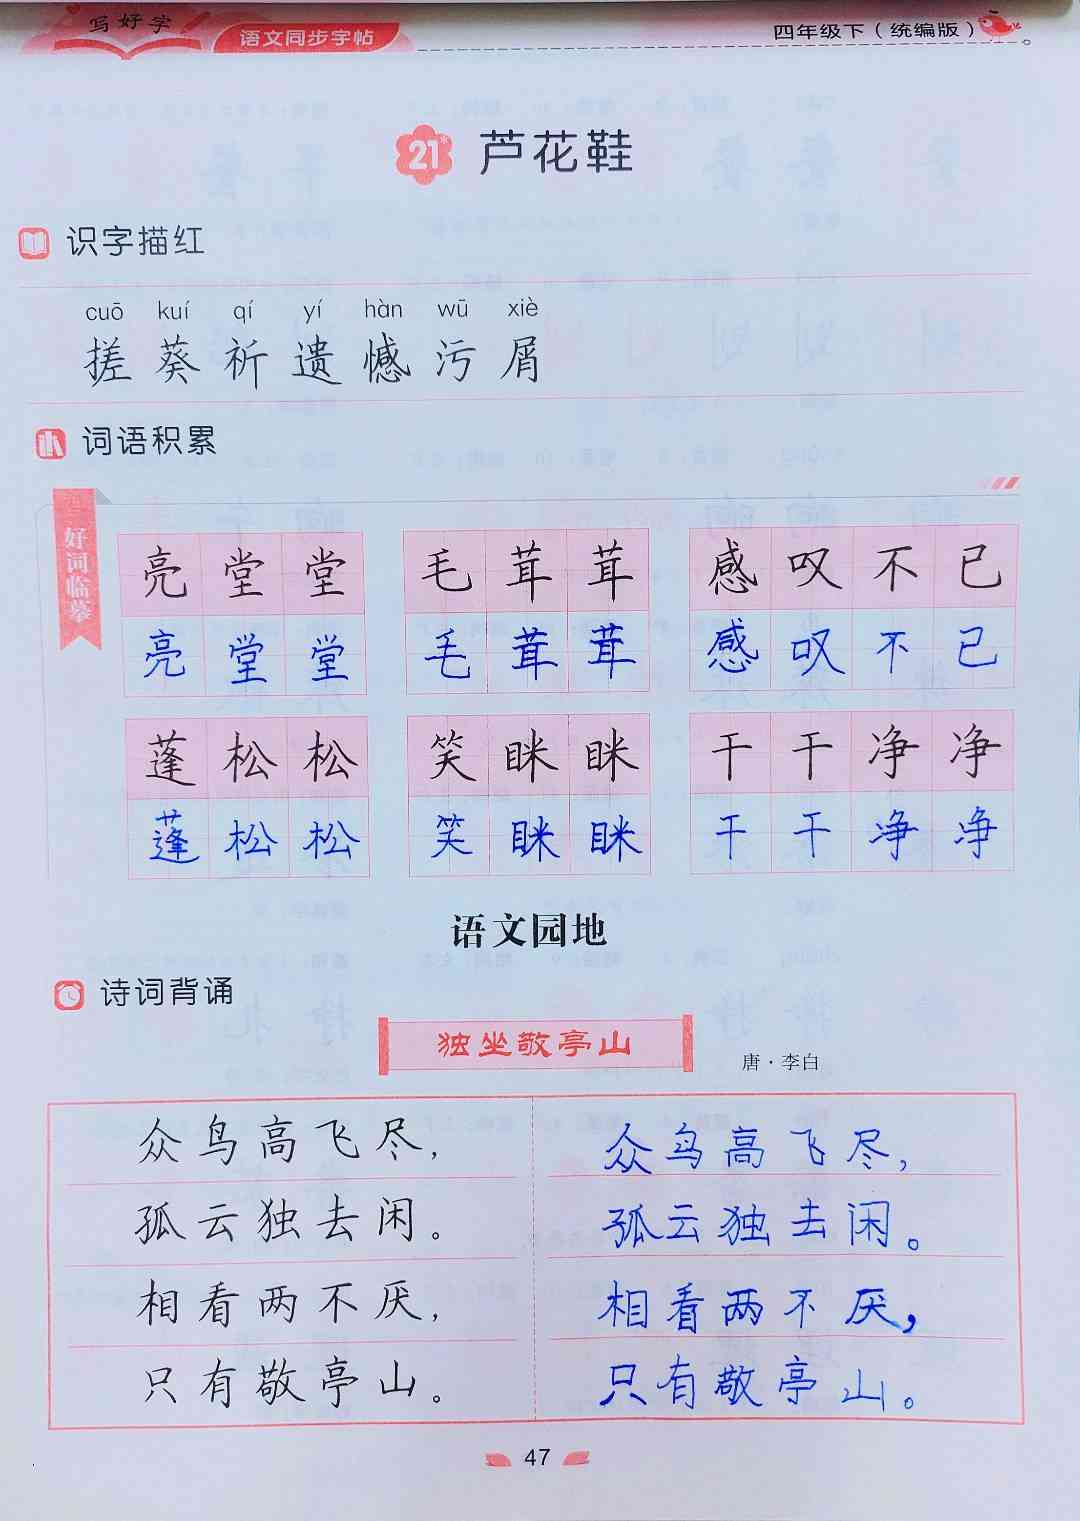 写好字
语文同步字帖
四年级下（统编版）
21* 芦花鞋
识字描红
cuō kuí qí yí hàn wū xiè
搓 葵 祈 遗 憾 污 屑
词语积累
好词临摹
亮堂堂 毛茸茸 感叹不已
亮堂堂 毛茸茸 感叹不已
蓬松松 笑眯眯 干干净净
蓬松松 笑眯眯 干干净净
语文园地
诗词背诵
独坐敬亭山
唐·李白
众鸟高飞尽， 众鸟高飞尽，
孤云独去闲。 孤云独去闲。
相看两不厌， 相看两不厌，
只有敬亭山。 只有敬亭山。
47